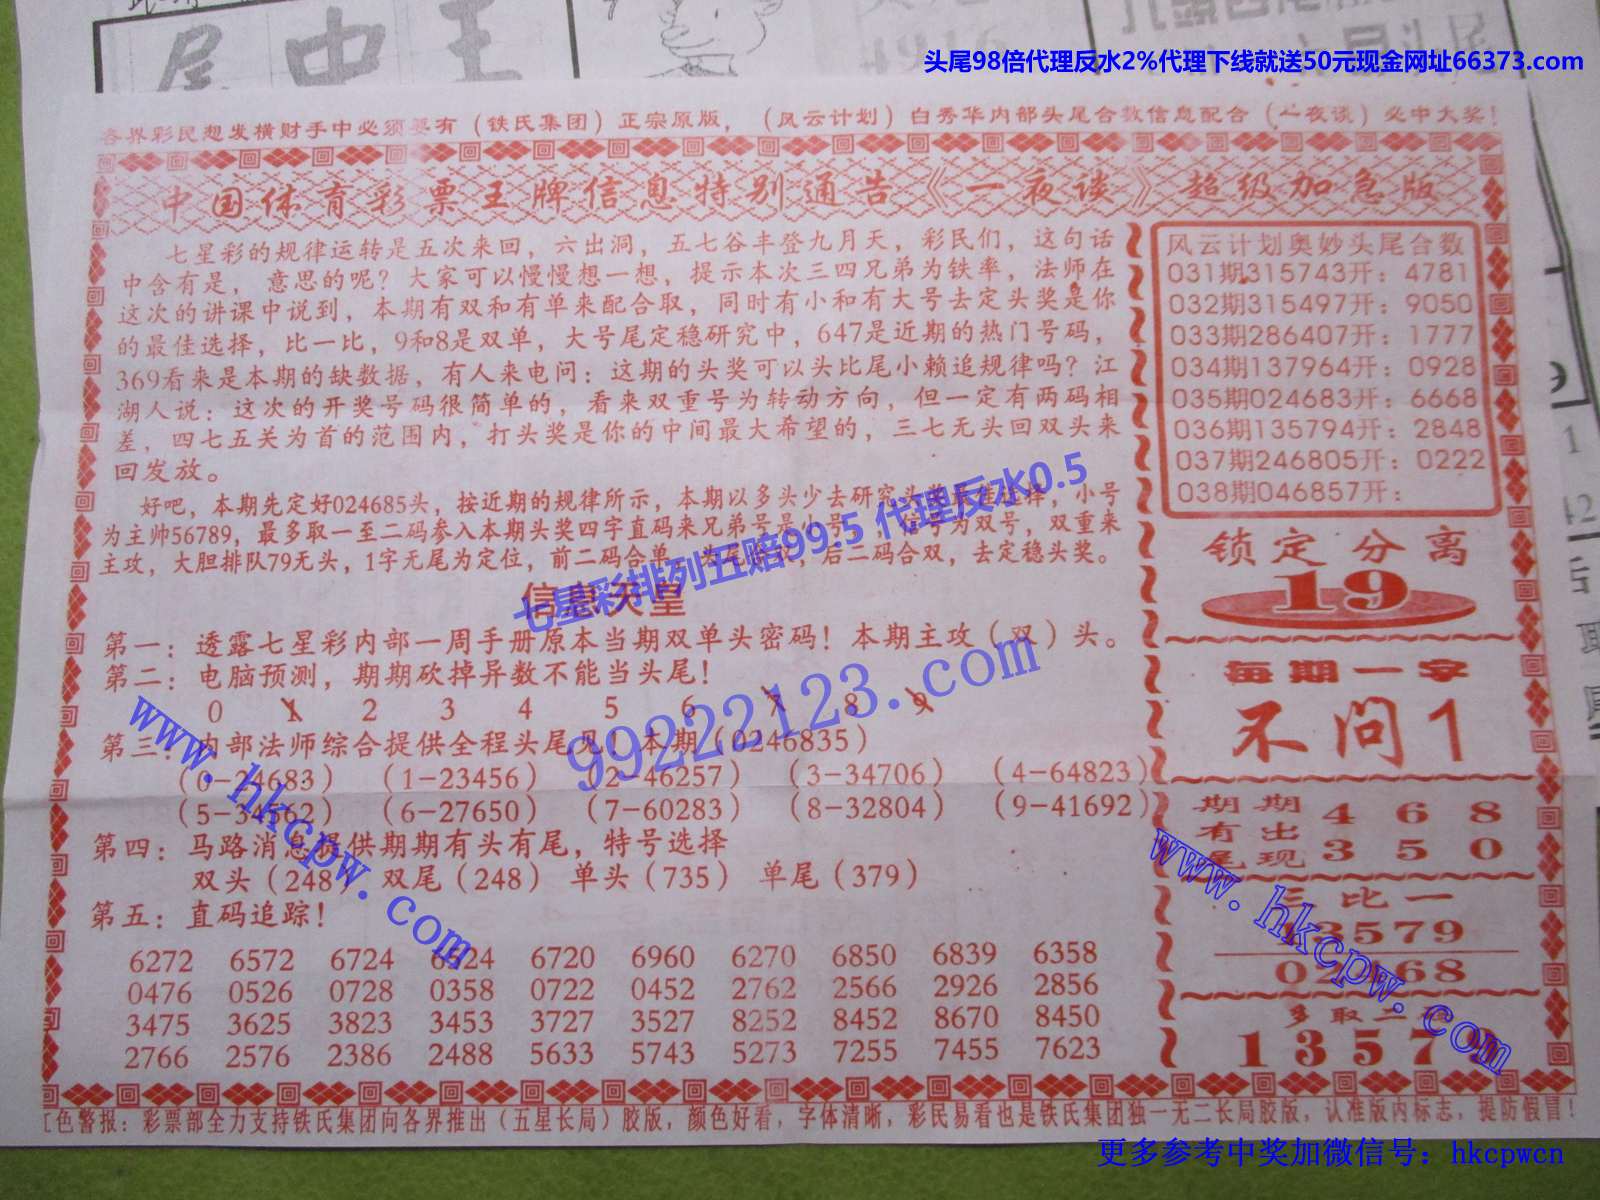 尾中王
头尾98倍代理反水2%代理下线就送50元现金网址66373.com
各界彩民想发横财手中必须要有（铁氏集团）正宗原版，（风云计划）白秀华内部头尾合数信息配合（一夜谈）必中大奖！
中国体育彩票王牌信息特别通告《一夜谈》超级加急版
七星彩的规律运转是五次来回，六出洞，五七谷丰登九月天，彩民们，这句话
中含有是，意思的呢？大家可以慢慢想一想，提示本次三四兄弟为铁率，法师在
这次的讲课中说到，本期有双和有单来配合取，同时有小和有大号去定头奖是你
的最佳选择，比一比，9和8是双单，大号尾定稳研究中，647是近期的热门号码，
369看来是本期的缺数据，有人来电问：这期的头奖可以头比尾小赖追规律吗？江
湖人说：这次的开奖号码很简单的，看来双重号为转动方向，但一定有两码相
差，四七五关为首的范围内，打头奖是你的中间最大希望的，三七无头回双头来
回发放。
好吧，本期先定好024685头，按近期的规律所示，本期以多头少去研究头
择，小号
为主帅56789，最多取一至二码参入本期头奖四字直码来兄弟号是
号为双号，双重来
主攻，大胆排队79无头，1字无尾为定位，前二码合单，
后二码合双，去定稳头奖。
七星彩排列五赔99.5 代理反水0.5
信息天皇
第一：透露七星彩内部一周手册原本当期双单头密码！本期主攻（双）头。
第二：电脑预测，期期砍掉异数不能当头尾！
0 1 2 3 4 5 6 7 8 9
第三：内部法师综合提供全程头尾见！本期（0246835）
（0-24683）（1-23456）（2-46257）（3-34706）（4-64823）
（5-34562）（6-27650）（7-60283）（8-32804）（9-41692）
第四：马路消息提供期期有头有尾，特号选择
双头（248）双尾（248）单头（735）单尾（379）
第五：直码追踪！
6272 6572 6724 6524 6720 6960 6270 6850 6839 6358
0476 0526 0728 0358 0722 0452 2762 2566 2926 2856
3475 3625 3823 3453 3727 3527 8252 8452 8670 8450
2766 2576 2386 2488 5633 5743 5273 7255 7455 7623
风云计划奥妙头尾合数
031期315743开：4781
032期315497开：9050
033期286407开：1777
034期137964开：0928
035期024683开：6668
036期135794开：2848
037期246805开：0222
038期046857开：
锁定分离
19
每期一字
不问1
期期 4 6 8
有出
尾现 3 5 0
三比一
13579
02468
多取二码
1 3 5 7 9
99222123.com
www.hkcpw.com
www.hkcpw.com
红色警报：彩票部全力支持铁氏集团向各界推出（五星长局）胶版，颜色好看，字体清晰，彩民易看也是铁氏集团独一无二长局胶版，认准版内标志，提防假冒！
更多参考中奖加微信号：hkcpwcn